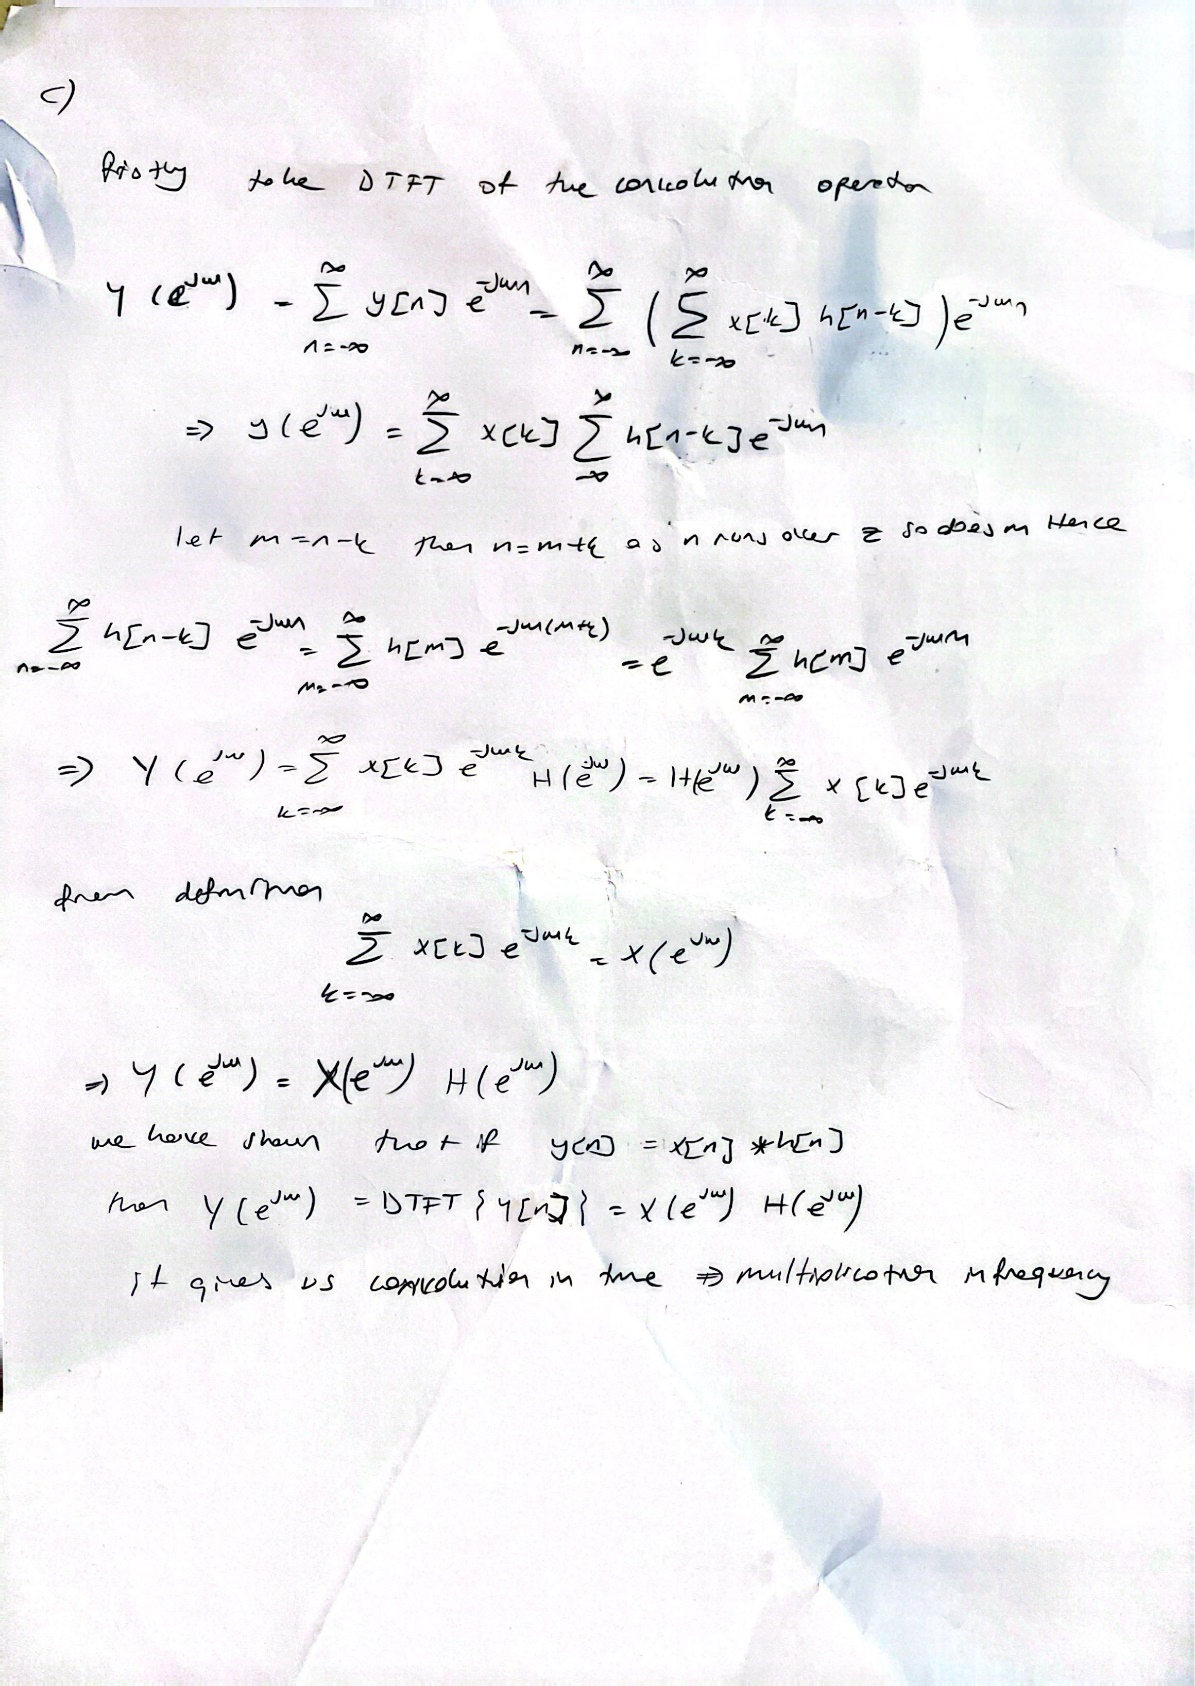 c)
Firstly take DTFT of the convolution operator
Y(e^{jω}) = ∑_{n=-∞}^{∞} y[n] e^{-jωn} = ∑_{n=-∞}^{∞} ( ∑_{k=-∞}^{∞} x[k] h[n-k] ) e^{-jωn}
⇒ y(e^{jω}) = ∑_{k=-∞}^{∞} x[k] ∑_{-∞}^{∞} h[n-k] e^{-jωn}
let m = n-k then n = m+k as n runs over z so does m Hence
∑_{n=-∞}^{∞} h[n-k] e^{-jωn} = ∑_{m=-∞}^{∞} h[m] e^{-jω(m+k)} = e^{-jωk} ∑_{m=-∞}^{∞} h[m] e^{-jωm}
⇒ Y(e^{jω}) = ∑_{k=-∞}^{∞} x[k] e^{-jωk} H(e^{jω}) = H(e^{jω}) ∑_{k=-∞}^{∞} x[k] e^{-jωk}
from definition
∑_{k=-∞}^{∞} x[k] e^{-jωk} = X(e^{jω})
⇒ Y(e^{jω}) = X(e^{jω}) H(e^{jω})
we have shown that if y[n] = x[n] * h[n]
then Y(e^{jω}) = DTFT {y[n]} = X(e^{jω}) H(e^{jω})
it gives us convolution in time ⇒ multiplication in frequency